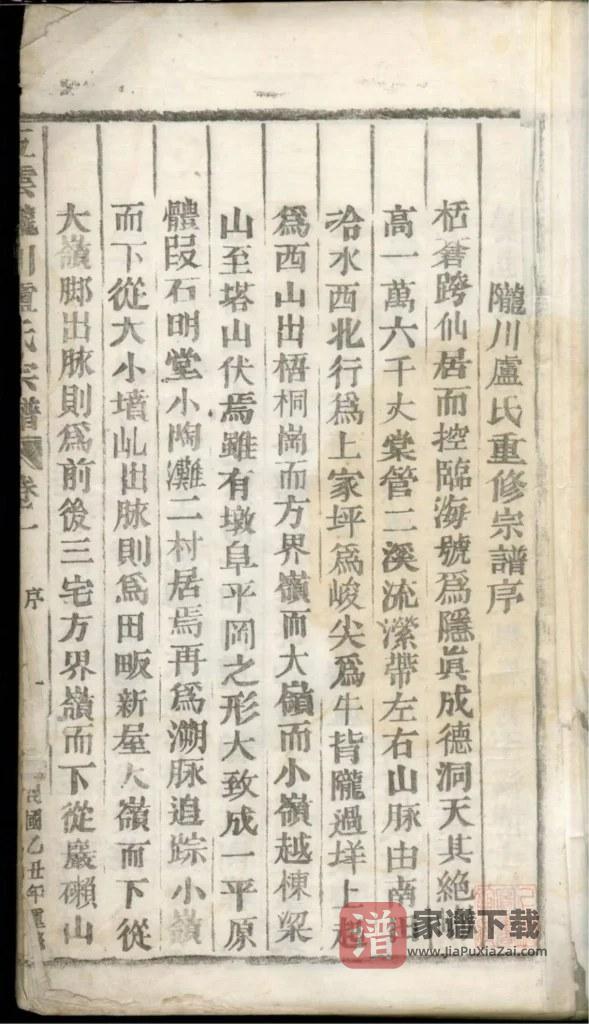 隴川盧氏重修宗譜序
栝蒼跨仙居而控臨海號爲隱眞成德洞天其絶
高一萬六千丈棠管二溪流瀠帶左右山脉由南
冾水西北行爲上家坪爲峻尖爲牛背隴過垟上越
爲西山出梧桐崗而方界嶺而大嶺而小嶺越棟梁
山至塔山伏焉雖有墩阜平岡之形大致成一平原
體段石明堂小陶灘二村居焉再爲溯脉追踪小嶺
而下從大小墳乢出脉則爲田畈新屋大嶺而下從
大嶺脚出脉則爲前後三宅方界嶺而下從巖磡山
五雲隴川盧氏宗譜 卷一 序 一 民國乙丑年重修
譜 家谱下载
www.JiaPuXiaZai.com